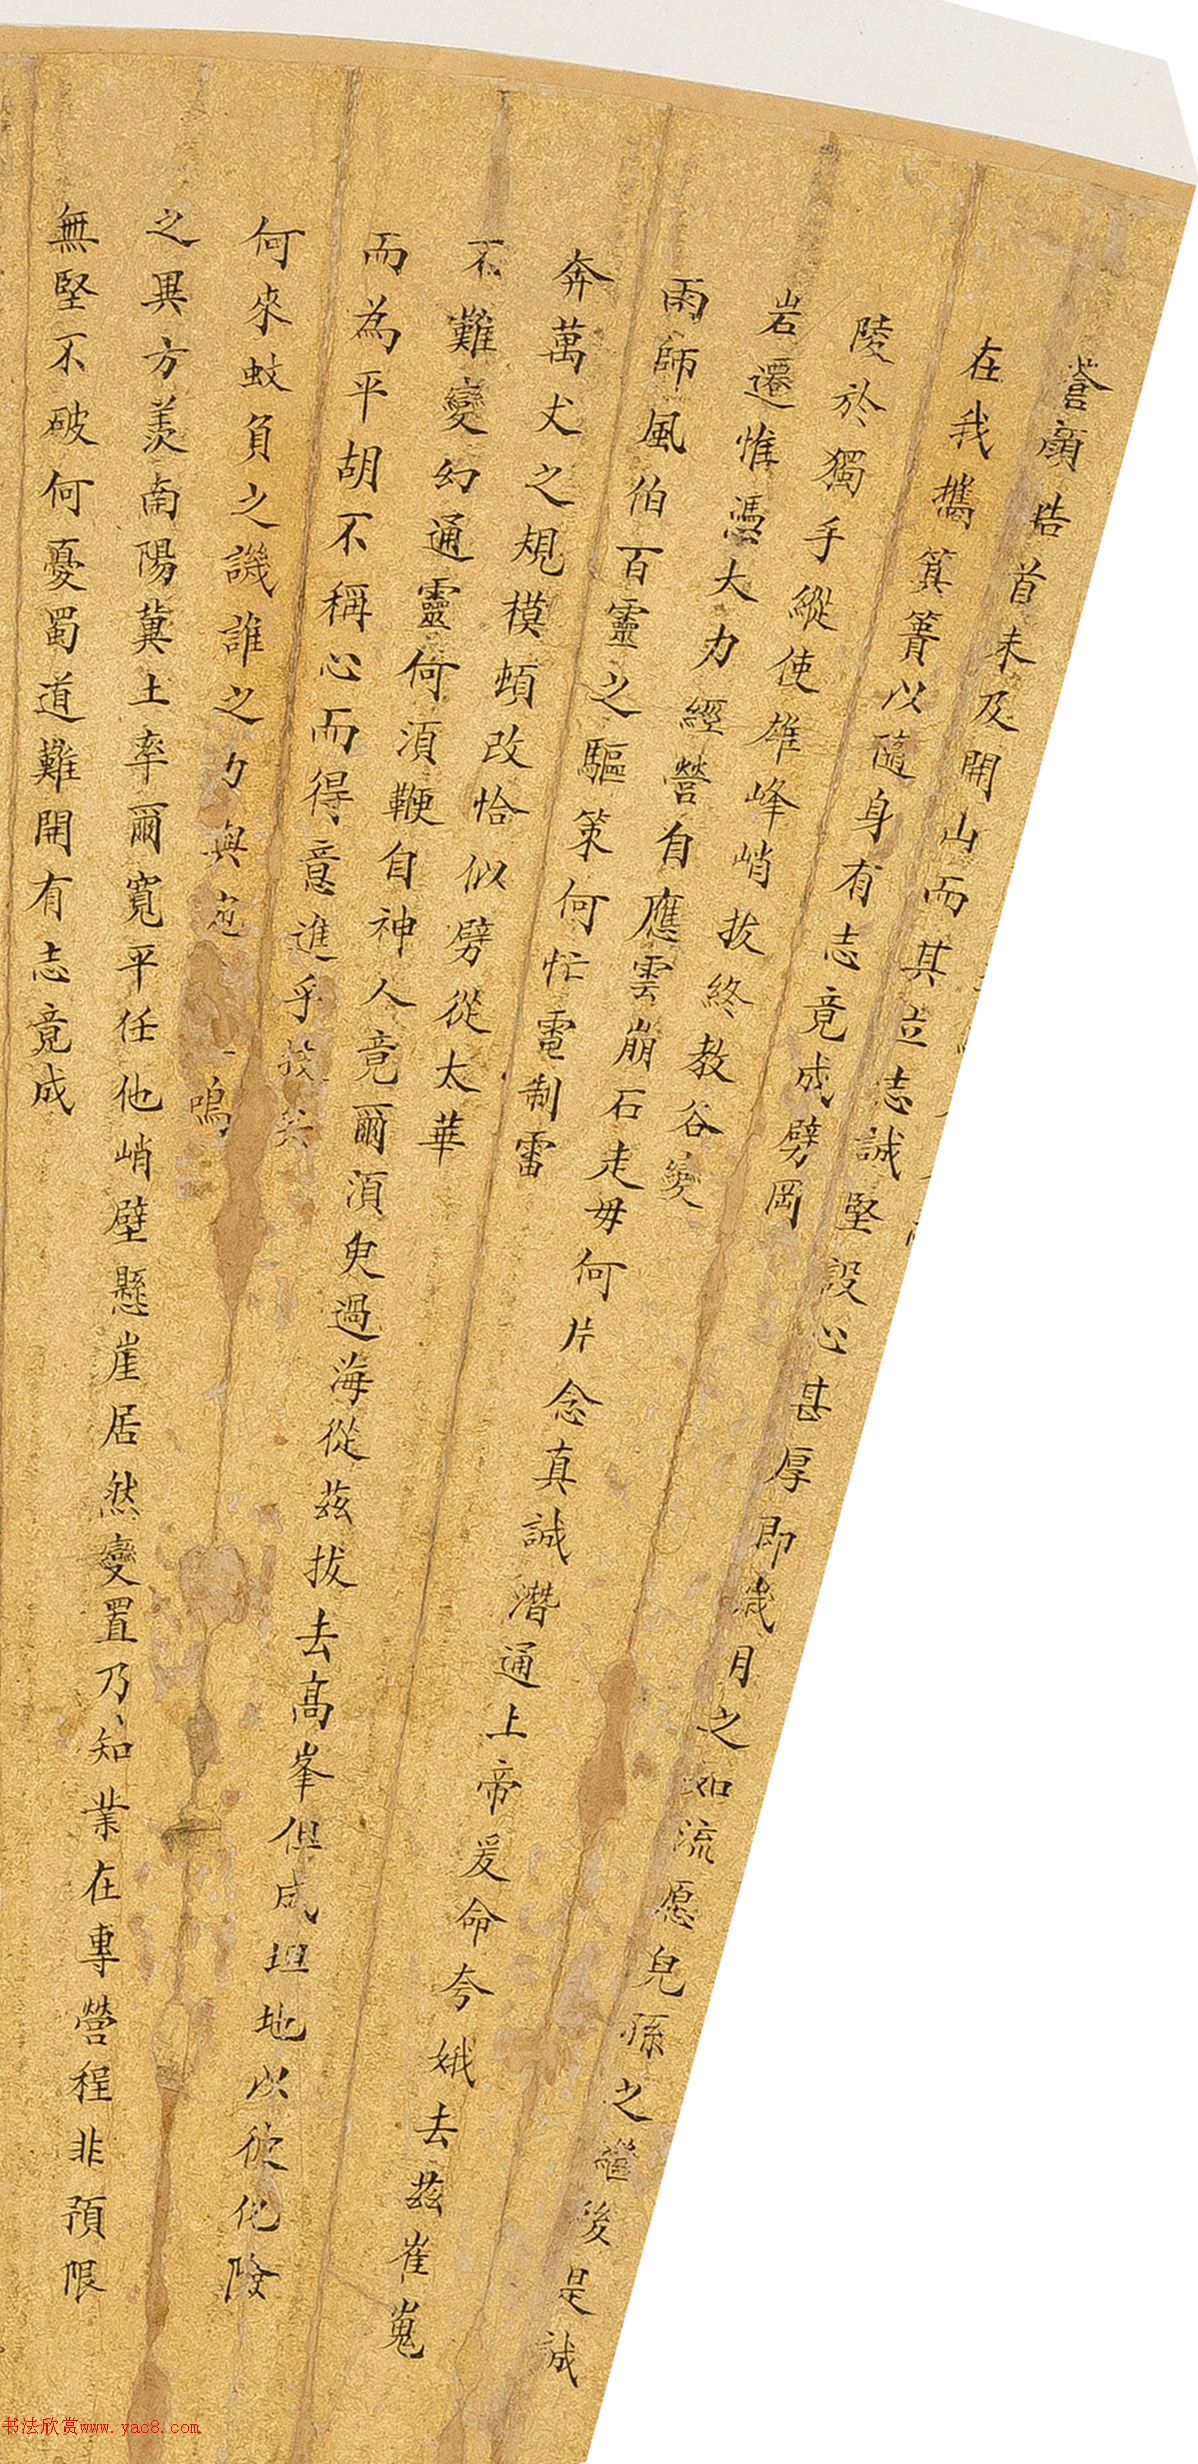 蒼顏皓首未及開山而其立志誠堅設心甚厚即歲月之如流愿兒孫之繼後是誠
在我攜箕箒以隨身有志竟成劈岡
陵於獨手縱使雄峰峭拔終教谷變
岩遷惟憑大力經營自應雲崩石走毋何片念真誠潛通上帝爰命夸娥去茲崔嵬
雨師風伯百靈之驅策何忙電制雷
奔萬丈之規模頓改恰似劈從太華
不難變幻通靈何須鞭自神人竟爾須臾過海從茲拔去高峯但成坦地以彼化險
而為平胡不稱心而得意進乎技矣
何來蚊負之譏誰之力與 嗚
之異方羨南陽冀土率爾寬平任他峭壁懸崖居然變置乃知業在專營程非預限
無堅不破何憂蜀道難開有志竟成
书法欣赏www.yac8.com